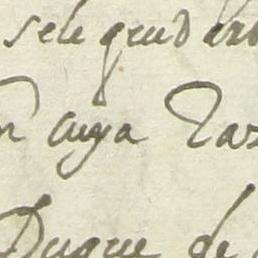 sele quedar
n cuya Raz
Duque de